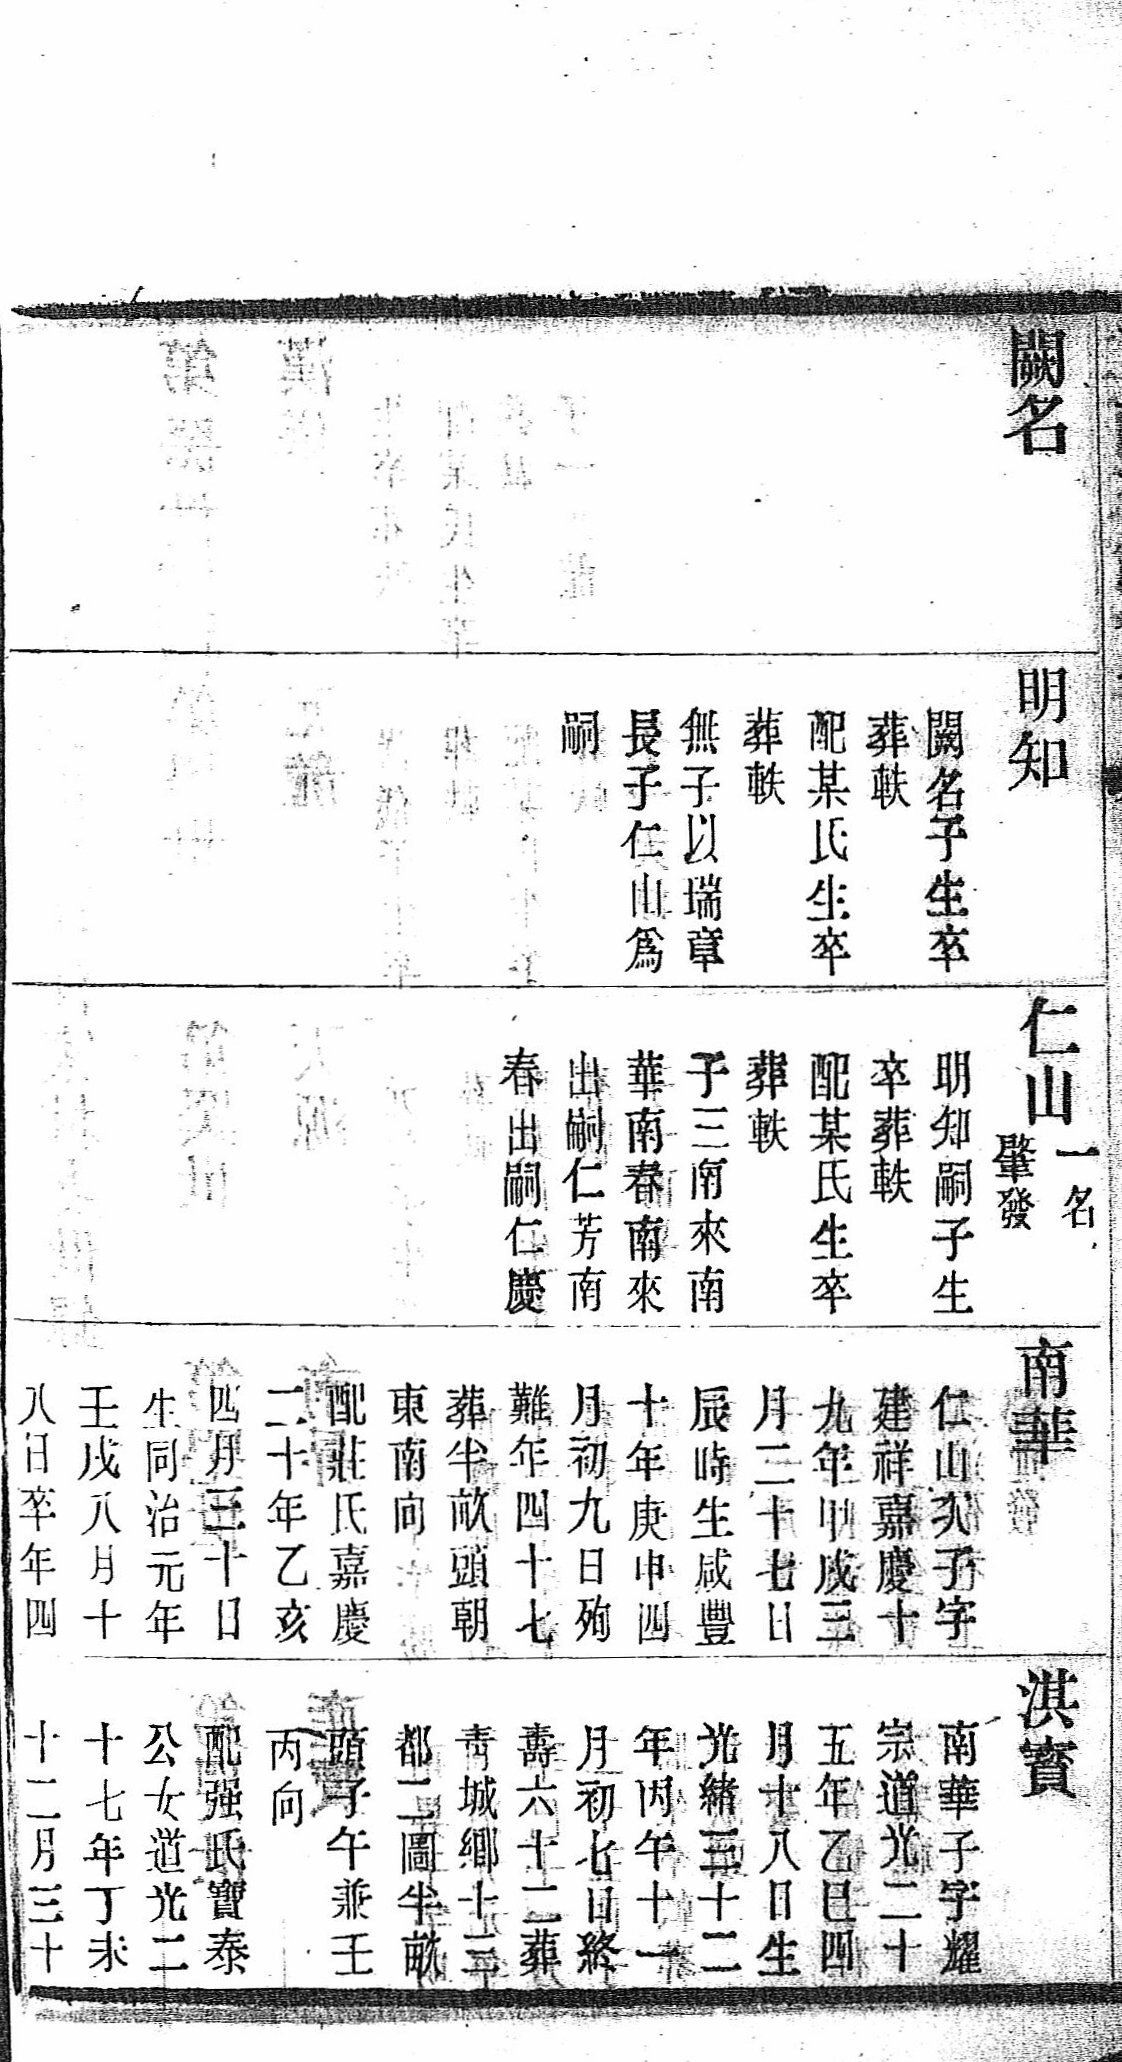 闕名
明知
闕名子生卒
葬軼
配某氏生卒
葬軼
無子以瑞章
長子仁山爲
嗣
仁山一名肇發
明知嗣子生
卒葬軼
配某氏生卒
葬軼
子三南來南
華南春南來
出嗣仁芳南
春出嗣仁慶
南華
仁山次子字
建祥嘉慶十
九年甲戌三
月二十七日
辰時生咸豐
十年庚申四
月初九日殉
難年四十七
葬半畝頭朝
東南向
配莊氏嘉慶
二十年乙亥
四月三十日
生同治元年
壬戌八月十
八日卒年四
淇寳
南華子字耀
宗道光二十
五年乙巳四
月十八日生
光緒三十二
年丙午十一
月初七日終
壽六十二葬
青城鄉十三
都二圖半畝
頭子午兼壬
丙向
配强氏寶泰
公女道光二
十七年丁未
十二月三十